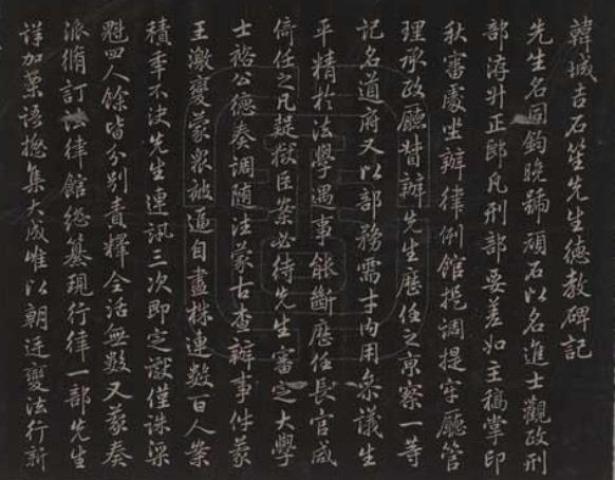 韓城吉石笙先生德教碑記
先生名同鈞晚號頑石以名進士觀政刑
部洊升正郎凡刑部要差如主稿掌印
秋審處坐辦律例館提調提牢廳管
理承政廳幫辦先生歷任之京察一等
記名道府又以部務需才內用參議生
平精於法學遇事能斷歷任長官咸
倚任之凡疑獄巨案必待先生審定大學
士裕公德奏調隨往蒙古查辦事件蒙
王激變蒙眾被逼自盡株連數百人案
積年不決先生連訊三次即定讞僅誅渠
魁四人餘皆分別責釋全活無數又蒙奏
派脩訂法律館總纂現行律一部先生
詳加案語總集大成唯以朝廷變法行新